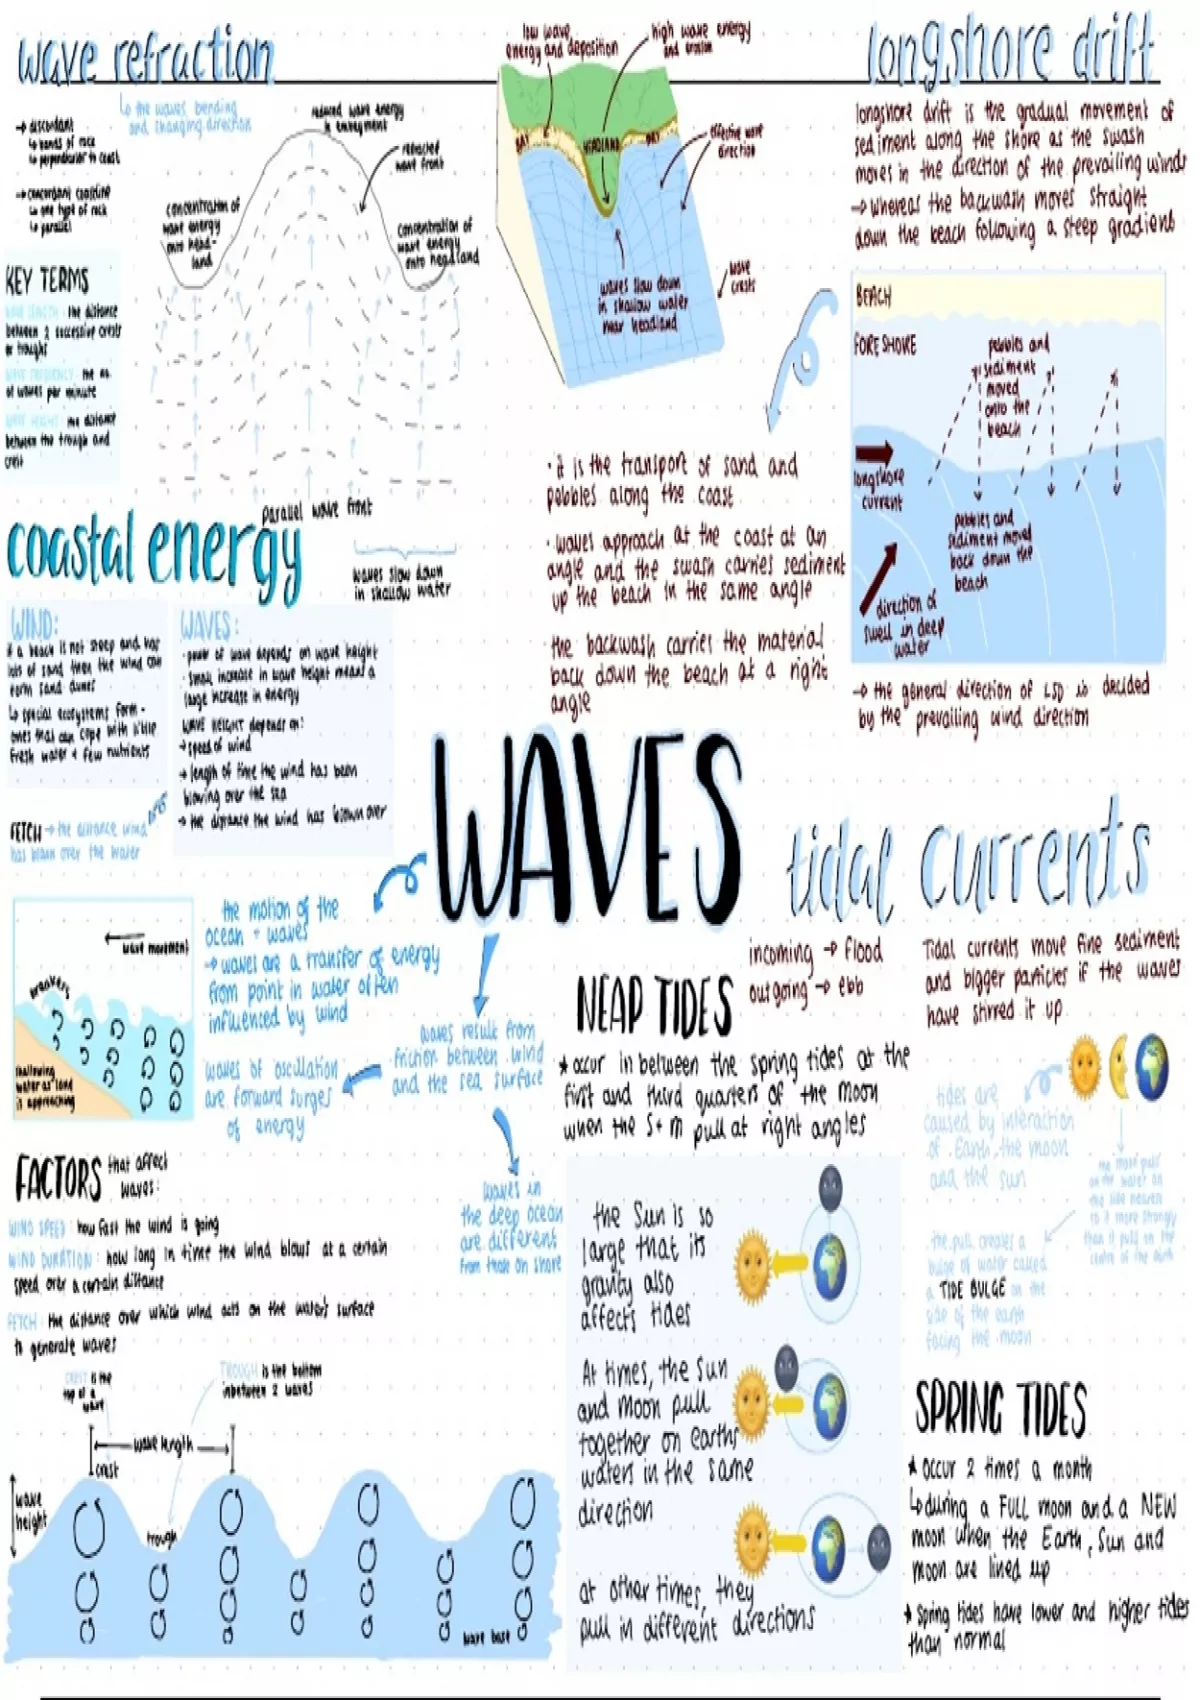 wave refraction
↳ the waves bending
and changing direction
→ discordant
↳ bands of rock
↳ perpendicular to coast
→ concordant coastline
↳ one type of rock
↳ parallel
KEY TERMS
WAVE LENGTH: the distance
between 2 successive crests
or troughs
WAVE FREQUENCY: the no.
of waves per minute
WAVE HEIGHT: the distance
between the trough and
crest
reduced wave energy
in embayment
refracted
wave front
concentration of
wave energy
onto head-
land
concentration of
wave energy
onto headland
parallel wave front
waves slow down
in shallow water
low wave
energy and deposition
high wave energy
and erosion
BAY
HEADLAND
BAY
effective wave
direction
waves slow down
in shallow water
near headland
wave
crests
longshore drift
longshore drift is the gradual movement of
sediment along the shore as the swash
moves in the direction of the prevailing winds
→ whereas the backwash moves straight
down the beach following a steep gradient
BEACH
FORESHORE
pebbles and
sediment
moved
onto the
beach
longshore
current
pebbles and
sediment moved
back down the
beach
direction of
swell in deep
water
→ the general direction of LSD is decided
by the prevailing wind direction
· it is the transport of sand and
pebbles along the coast
· waves approach at the coast at an
angle and the swash carries sediment
up the beach in the same angle
· the backwash carries the material
back down the beach at a right
angle
coastal energy
WIND:
if a beach is not steep and has
lots of sand then the wind can
form sand dunes
↳ special ecosystems form -
ones that can cope with little
fresh water + few nutrients
WAVES:
· power of wave depends on wave height
· small increase in wave height means a
large increase in energy
WAVE HEIGHT depends on:
→ speed of wind
→ length of time the wind has been
blowing over the sea
→ the distance the wind has blown over
FETCH → the distance wind
has blown over the water
WAVES
the motion of the
ocean + waves
→ waves are a transfer of energy
from point in water often
influenced by wind
waves result from
friction between wind
and the sea surface
waves of oscillation
are forward surges
of energy
waves in
the deep ocean
are different
from those on shore
wave movement
breakers
shallowing
water as land
is approaching
FACTORS that affect
waves:
WIND SPEED: how fast the wind is going
WIND DURATION: how long in time the wind blows at a certain
speed over a certain distance
FETCH: the distance over which wind acts on the water's surface
to generate waves
CREST is the
top of a
wave
TROUGH is the bottom
inbetween 2 waves
wave length
crest
wave
height
trough
wave base
tidal currents
incoming → flood
outgoing → ebb
Tidal currents move fine sediment
and bigger particles if the waves
have stirred it up
NEAP TIDES
★ occur in between the spring tides at the
first and third quarters of the moon
when the S+M pull at right angles
tides are
caused by interaction
of Earth, the moon
and the sun
the moon pulls
on the water on
the side nearest
to it more strongly
than it pulls on the
centre of the earth
the pull creates a
bulge of water called
a TIDE BULGE on the
side of the earth
facing the moon
the Sun is so
large that its
gravity also
affects tides
At times, the Sun
and moon pull
together on earths
waters in the same
direction
at other times, they
pull in different directions
SPRING TIDES
★ occur 2 times a month
↳ during a FULL moon and a NEW
moon when the Earth, Sun and
moon are lined up
★ spring tides have lower and higher tides
than normal